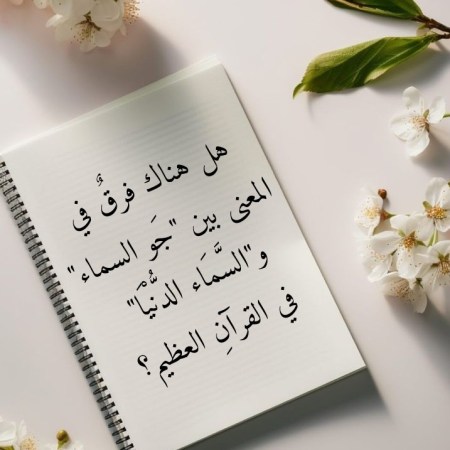 هل هناك فرقٌ في
المعنى بين "جَو السماء"
و"السَّمَاء الدُّنْيَا"
في القرآنِ العظيم؟